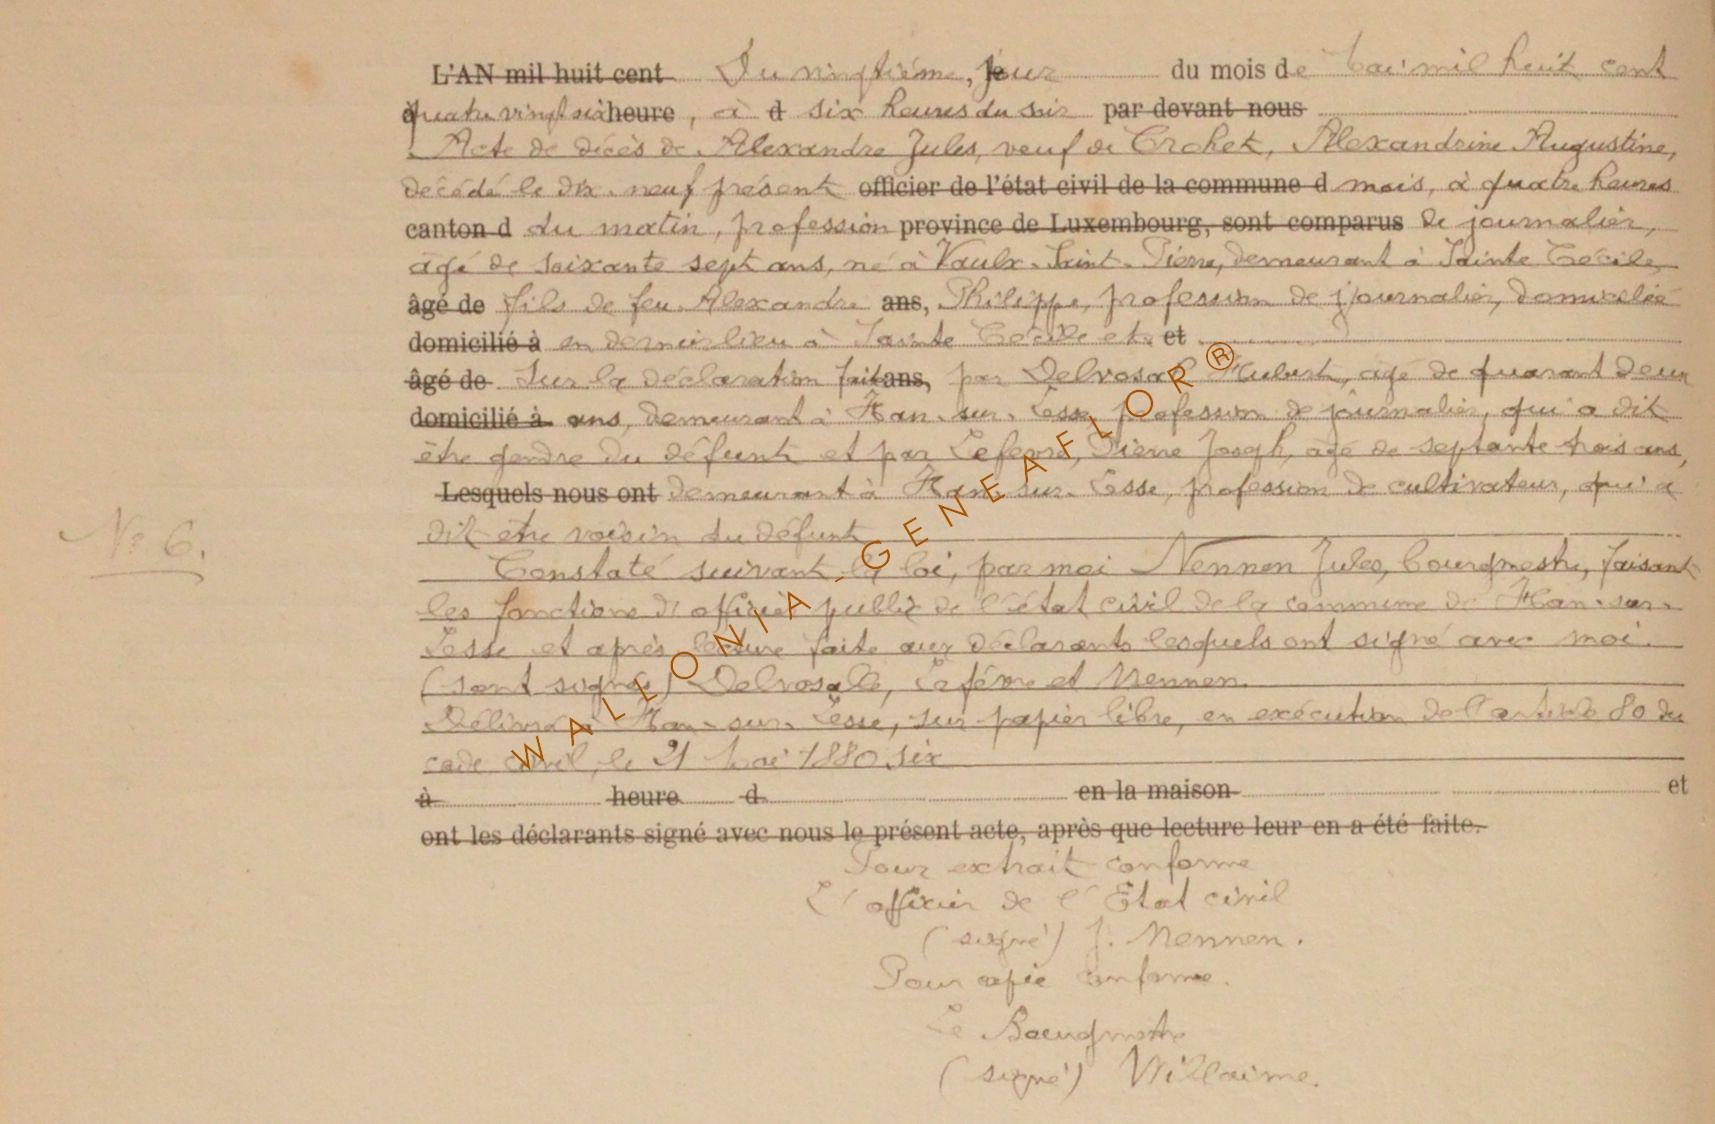 L'AN mil huit cent Du vingtième, jour du mois de mai mil huit cent
quatre vingt six heure, à d six heures du soir par devant nous
Acte de décès de Alexandre Jules, veuf de Crohet, Alexandrine Augustine,
décédé le dix-neuf présent officier de l'état civil de la commune d mois, à quatre heures
canton d du matin, profession province de Luxembourg, sont comparus de journalier,
âgé de soixante sept ans, né à Vaulx-Saint-Pierre, demeurant à Sainte Cécile,
âgé de fils de feu Alexandre ans, Philippe, profession de journalier, domicilié
domicilié à en dernier lieu à Sainte Cécile et et
âgé de Sur la déclaration fait ans, par Delvosal Hubert, âgé de quarant deux
domicilié à ans, demeurant à Han-sur-Lesse, profession de journalier, qui a dit
être gendre du défunt et par Lefevre, Pierre Josegh, âgé de septante trois ans,
Lesquels nous ont demeurant à Han-sur-Lesse, profession de cultivateur, qui a
dit être voisin du défunt
No 6.
Constaté suivant la loi, par moi Nennen Jules, bourgmestre, faisant
les fonctions d'officier public de l'état civil de la commune de Han-sur-
Lesse et après lecture faite aux déclarants lesquels ont signé avec moi.
(sont signés) Delvosalle, Lefévre et Nennen.
Délivré à Han-sur-Lesse, sur papier libre, en exécution de l'article 80 du
code civil, le 21 mai 1880 six
à heure d en la maison et
ont les déclarants signé avec nous le présent acte, après que lecture leur en a été faite.
Pour extrait conforme
L'officier de l'Etat civil
(signé) J. Nennen.
Pour copie conforme.
Le Bourgmestre
(signé) Willaime.
WALLONIA-GENEAFLOR®